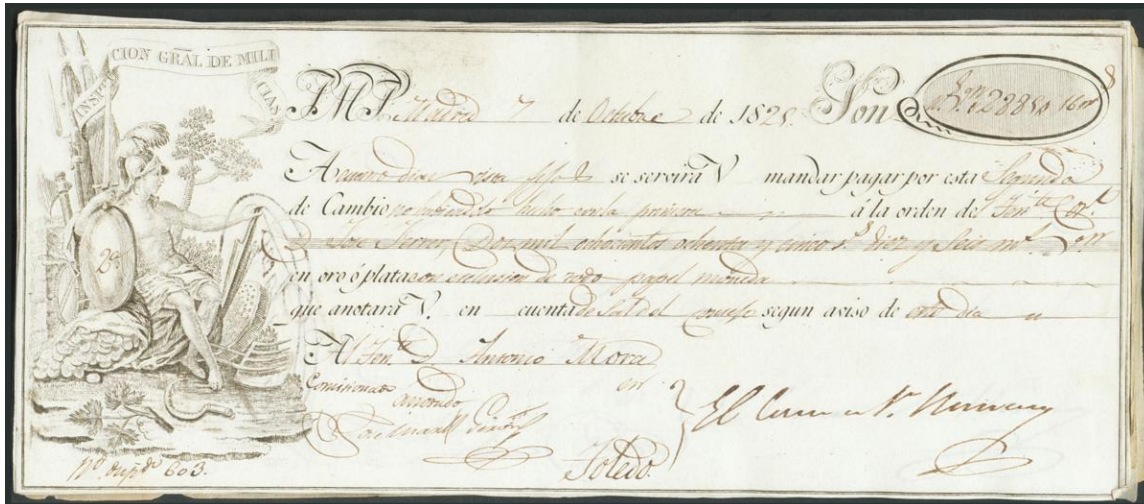 INSPECCION GRĀL DE MILICIAS
Madrid 7 de Octubre de 1825. Son 2885 16
8
A nueve dias vista se servirá V mandar pagar por esta Segunda
de Cambio no habiendolo hecho con la primera á la orden del Ten.te Cor.l
D. Jose Ferrer, Dos mil ochocientos ochenta y cinco r.s diez y Seis m.s von
en oro ó plata con exclusion de todo papel moneda
que anotará V. en cuenta de segun aviso de este dia
2a
Al Ten.te D. Antonio Mora
Comisionado en
Toledo.
No 603.